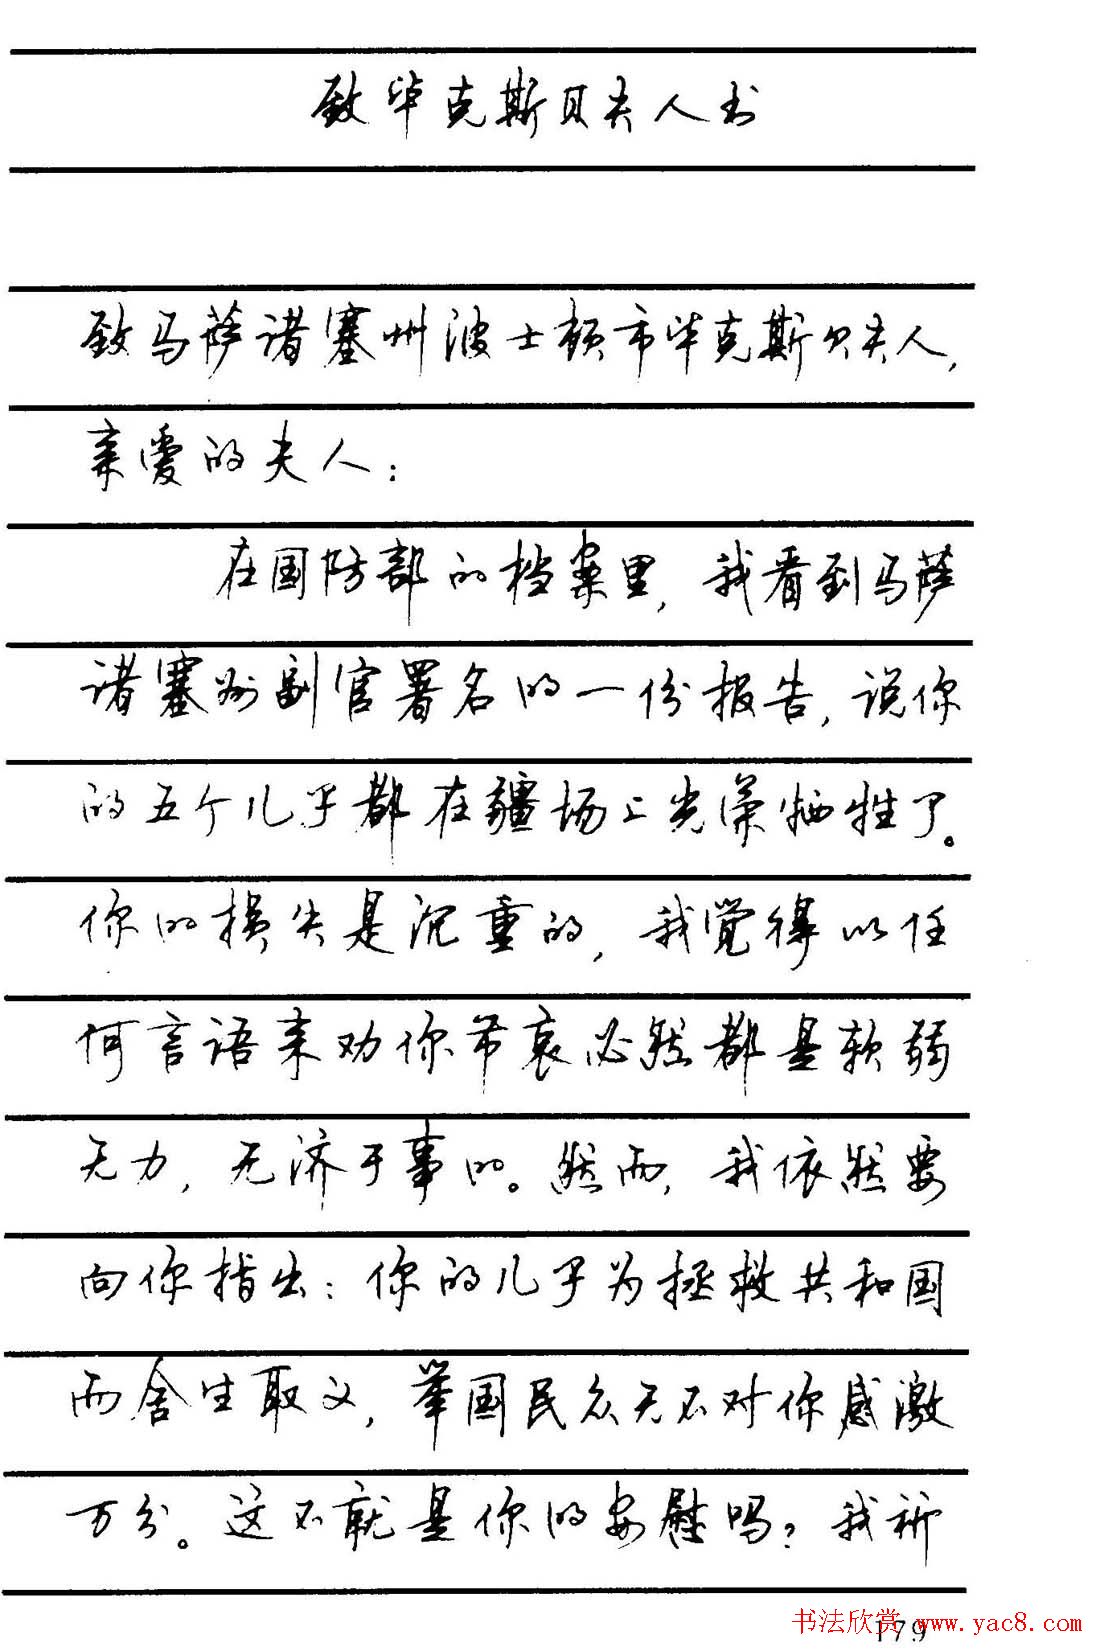 致毕克斯贝夫人书
致马萨诸塞州波士顿市毕克斯贝夫人,
亲爱的夫人:
在国防部的档案里,我看到马萨
诸塞州副官署名的一份报告,说你
的五个儿子都在疆场上光荣牺牲了。
你的损失是沉重的,我觉得以任
何言语来劝你节哀必然都是软弱
无力,无济于事的。然而,我依然要
向你指出:你的儿子为拯救共和国
而舍生取义,举国民众无不对你感激
万分。这不就是你的安慰吗?我祈
179
书法欣赏 www.yac8.com